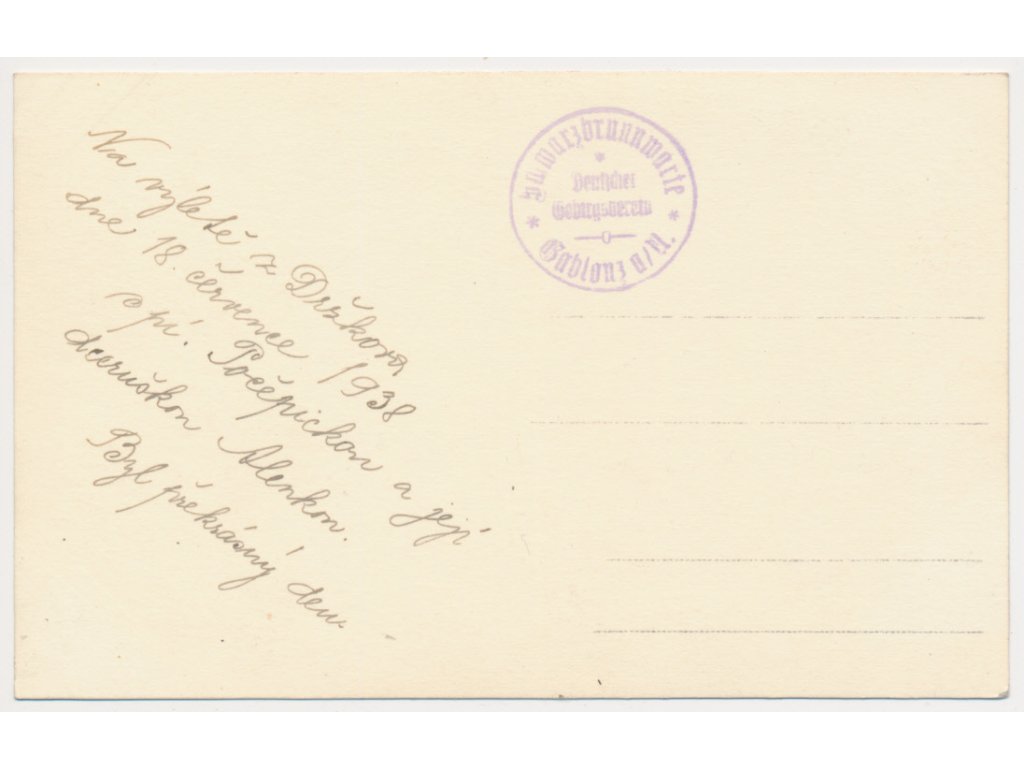 Na výletě z Držkova
dne 18. července 1938
s pí. Počěpickou a její
dceruškou Alenkou.
Byl překrásný den.
Schwarzbrunnwarte
Deutscher
Gebirgsverein
Gablonz a/N.